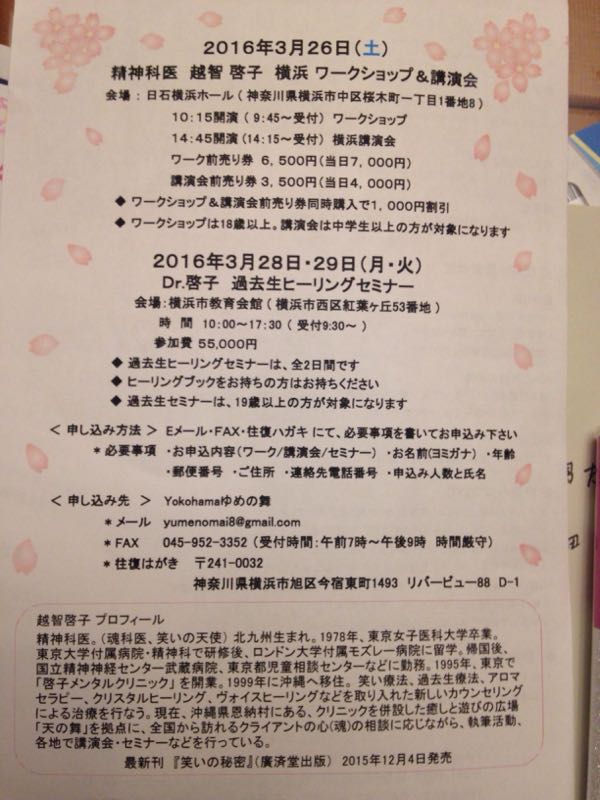 2016年3月26日(土)
精神科医 越智 啓子 横浜 ワークショップ＆講演会
会場：日石横浜ホール(神奈川県横浜市中区桜木町一丁目1番地8)
10:15開演(9:45～受付) ワークショップ
14:45開演(14:15～受付) 横浜講演会
ワーク前売り券 6,500円(当日7,000円)
講演会前売り券 3,500円(当日4,000円)
◆ ワークショップ＆講演会前売り券同時購入で1,000円割引
◆ ワークショップは18歳以上。講演会は中学生以上の方が対象になります
2016年3月28日・29日(月・火)
Dr.啓子 過去生ヒーリングセミナー
会場：横浜市教育会館(横浜市西区紅葉ヶ丘53番地)
時 間 10:00～17:30(受付9:30～)
参加費 55,000円
◆ 過去生ヒーリングセミナーは、全2日間です
◆ ヒーリングブックをお持ちの方はお持ちください
◆ 過去生セミナーは、19歳以上の方が対象になります
＜申し込み方法＞ Eメール・FAX・往復ハガキ にて、必要事項を書いてお申込み下さい
＊必要事項 ・お申込内容(ワーク/講演会/セミナー) ・お名前(ヨミガナ) ・年齢
・郵便番号 ・ご住所 ・連絡先電話番号 ・申込み人数と氏名
＜申し込み先＞ Yokohamaゆめの舞
＊メール yumenomai8@gmail.com
＊FAX 045-952-3352(受付時間：午前7時～午後9時 時間厳守)
＊往復はがき 〒241-0032
神奈川県横浜市旭区今宿東町1493 リバービュー88 D-1
越智啓子 プロフィール
精神科医。(魂科医、笑いの天使) 北九州生まれ。1978年、東京女子医科大学卒業。
東京大学付属病院・精神科で研修後、ロンドン大学付属モズレー病院に留学。帰国後、
国立精神神経センター武蔵病院、東京都児童相談センターなどに勤務。1995年、東京で
「啓子メンタルクリニック」を開業。1999年に沖縄へ移住。笑い療法、過去生療法、アロマ
セラピー、クリスタルヒーリング、ヴォイスヒーリングなどを取り入れた新しいカウンセリング
による治療を行なう。現在、沖縄県恩納村にある、クリニックを併設した癒しと遊びの広場
「天の舞」を拠点に、全国から訪れるクライアントの心(魂)の相談に応じながら、執筆活動、
各地で講演会・セミナーなどを行っている。
最新刊 『笑いの秘密』(廣済堂出版) 2015年12月4日発売